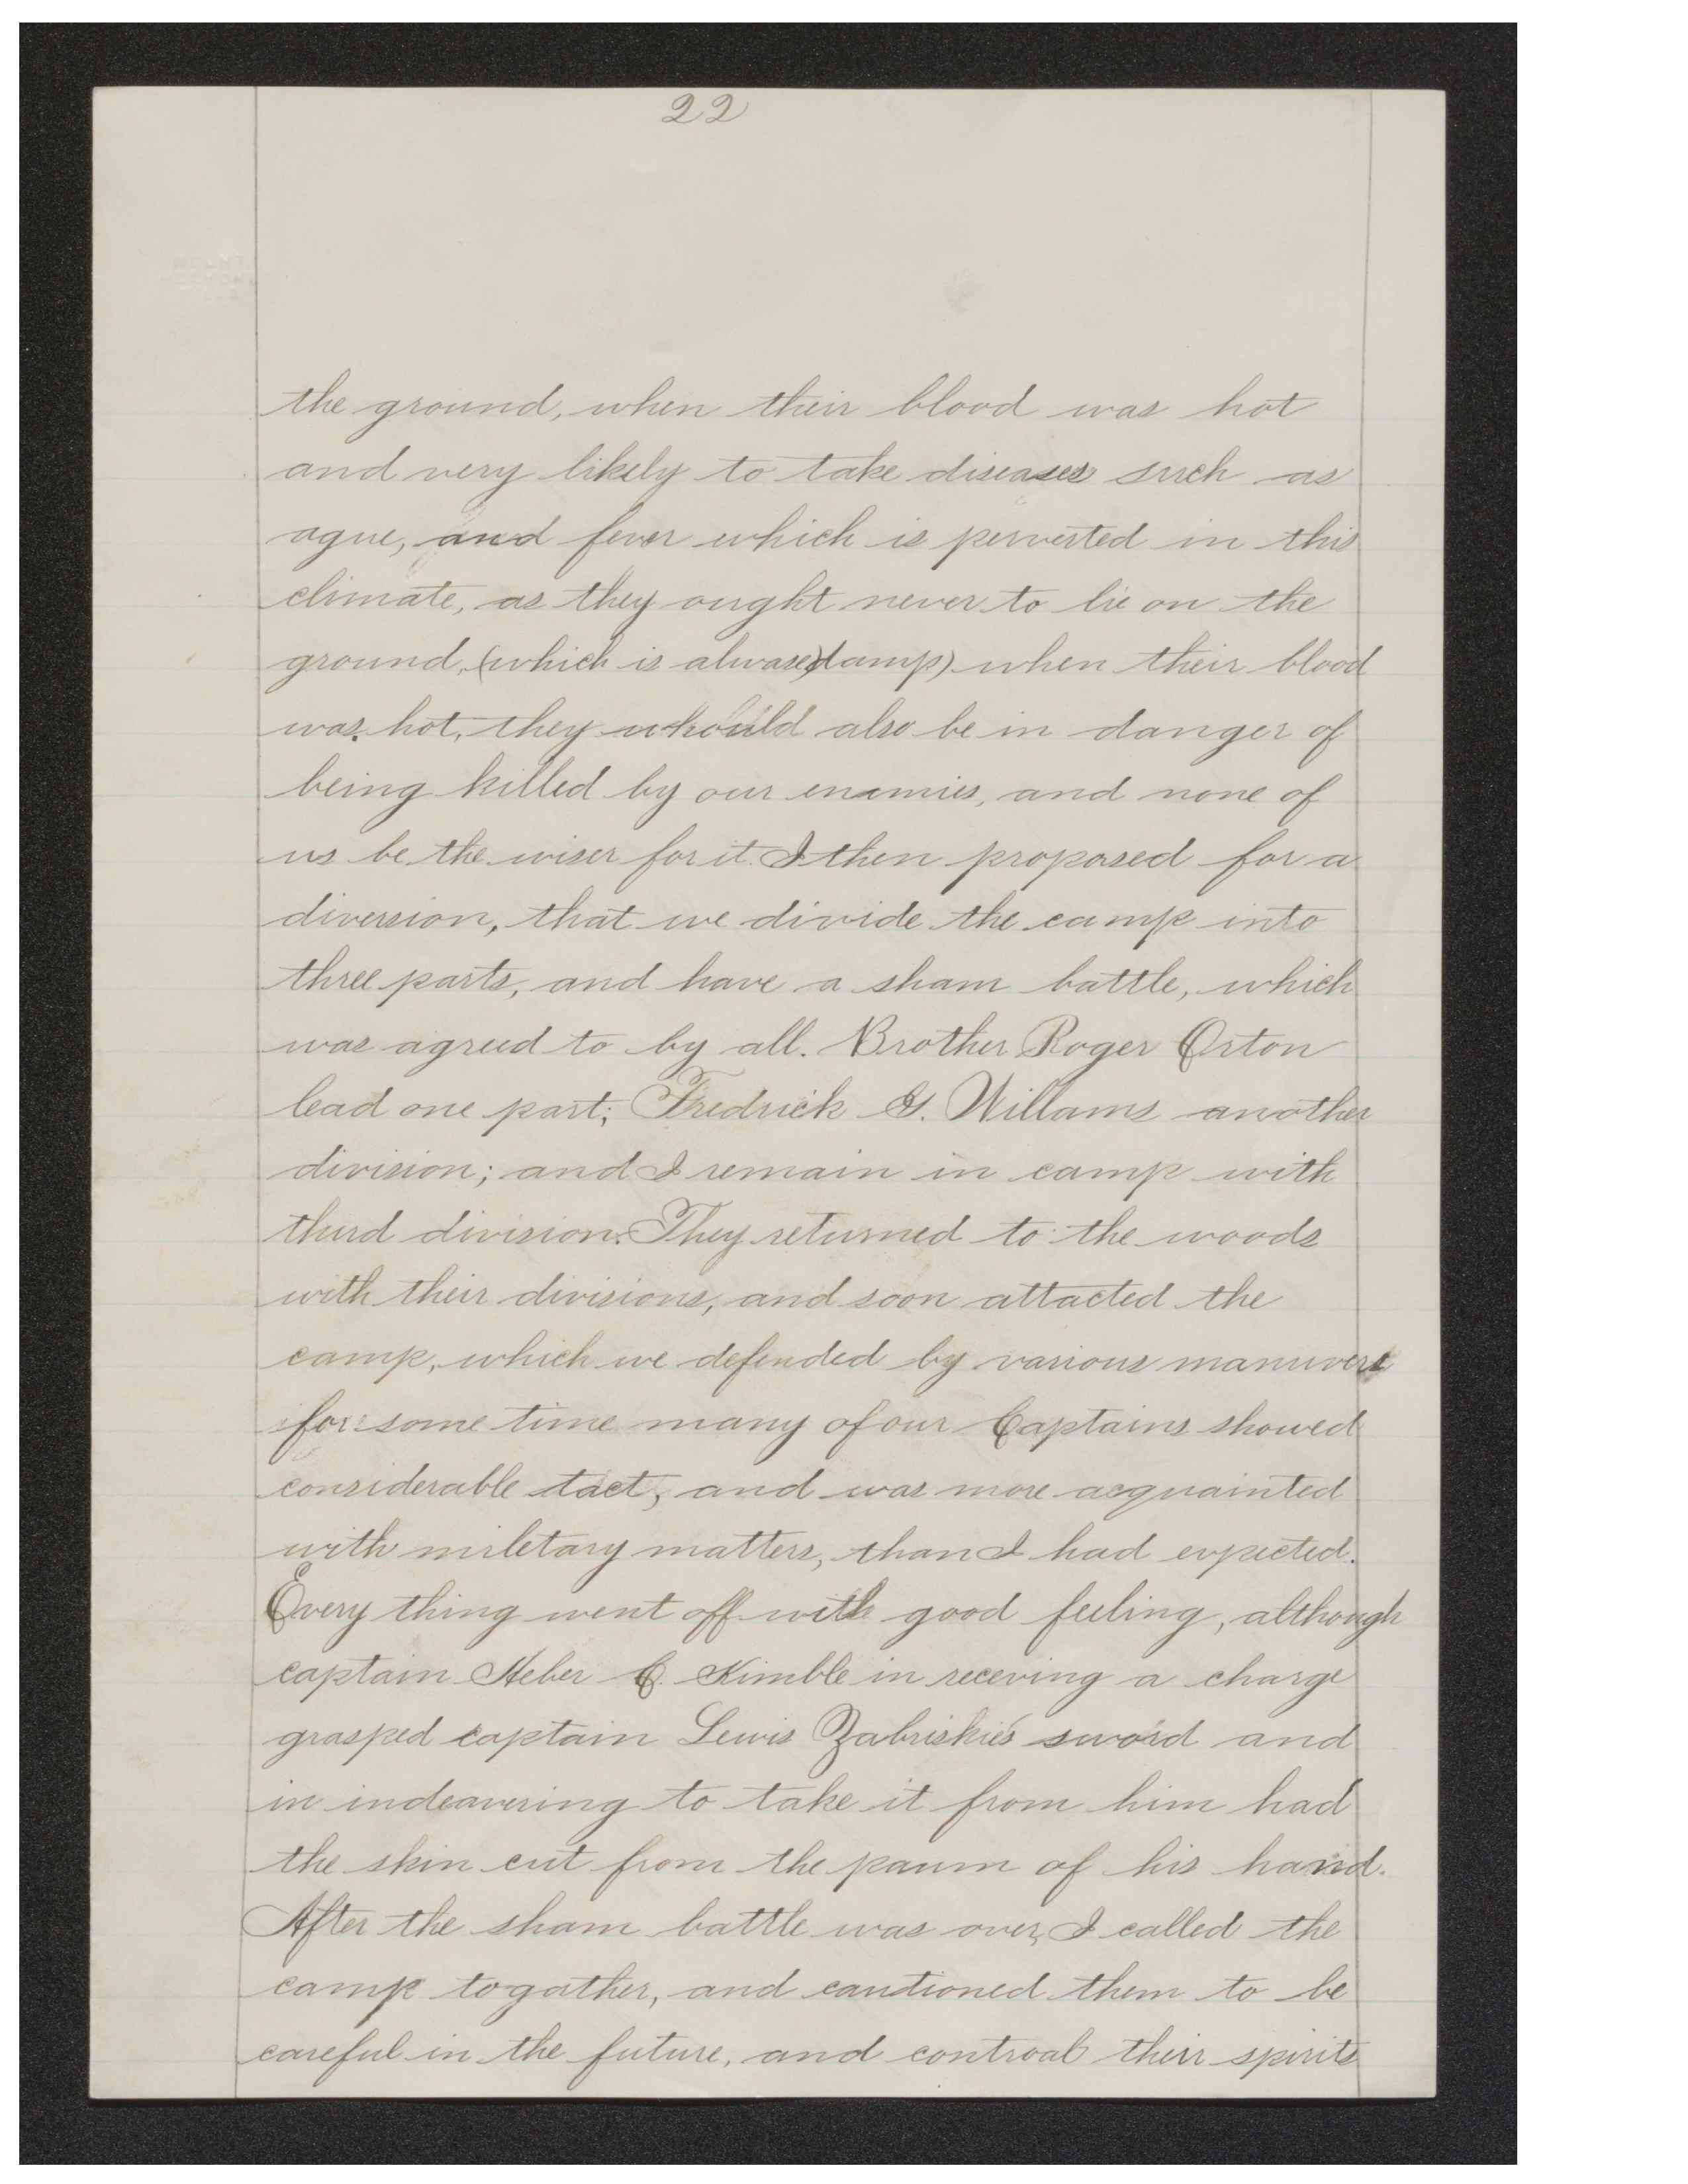 22
the ground, when their blood was hot
and very likely to take diseases such as
ague, and fever which is perverted in this
climate, as they ought never to lie on the
ground, (which is alwase damp) when their blood
was hot, they would also be in danger of
being killed by our enimies, and none of
us be the wiser for it. I then proposed for a
diversion, that we divide the camp into
three parts, and have a sham battle, which
was agreed to by all. Brother Roger Orton
lead one part; Fredrick G. Willams another
division; and I remain in camp with
third division. They returned to the woods
with their divisions, and soon attacted the
camp, which we defended by various manuvers
for some time many of our Captains showed
considerable tact, and was more acquainted
with miletary matters, than I had expected.
Every thing went off with good feeling, although
captain Heber C. Kimble in receving a charge
grasped captain Lewis Zabriskies sword and
in indeavering to take it from him had
the skin cut from the paum of his hand.
After the sham battle was over, I called the
camp togather, and cautioned them to be
careful in the future, and controal their spirits